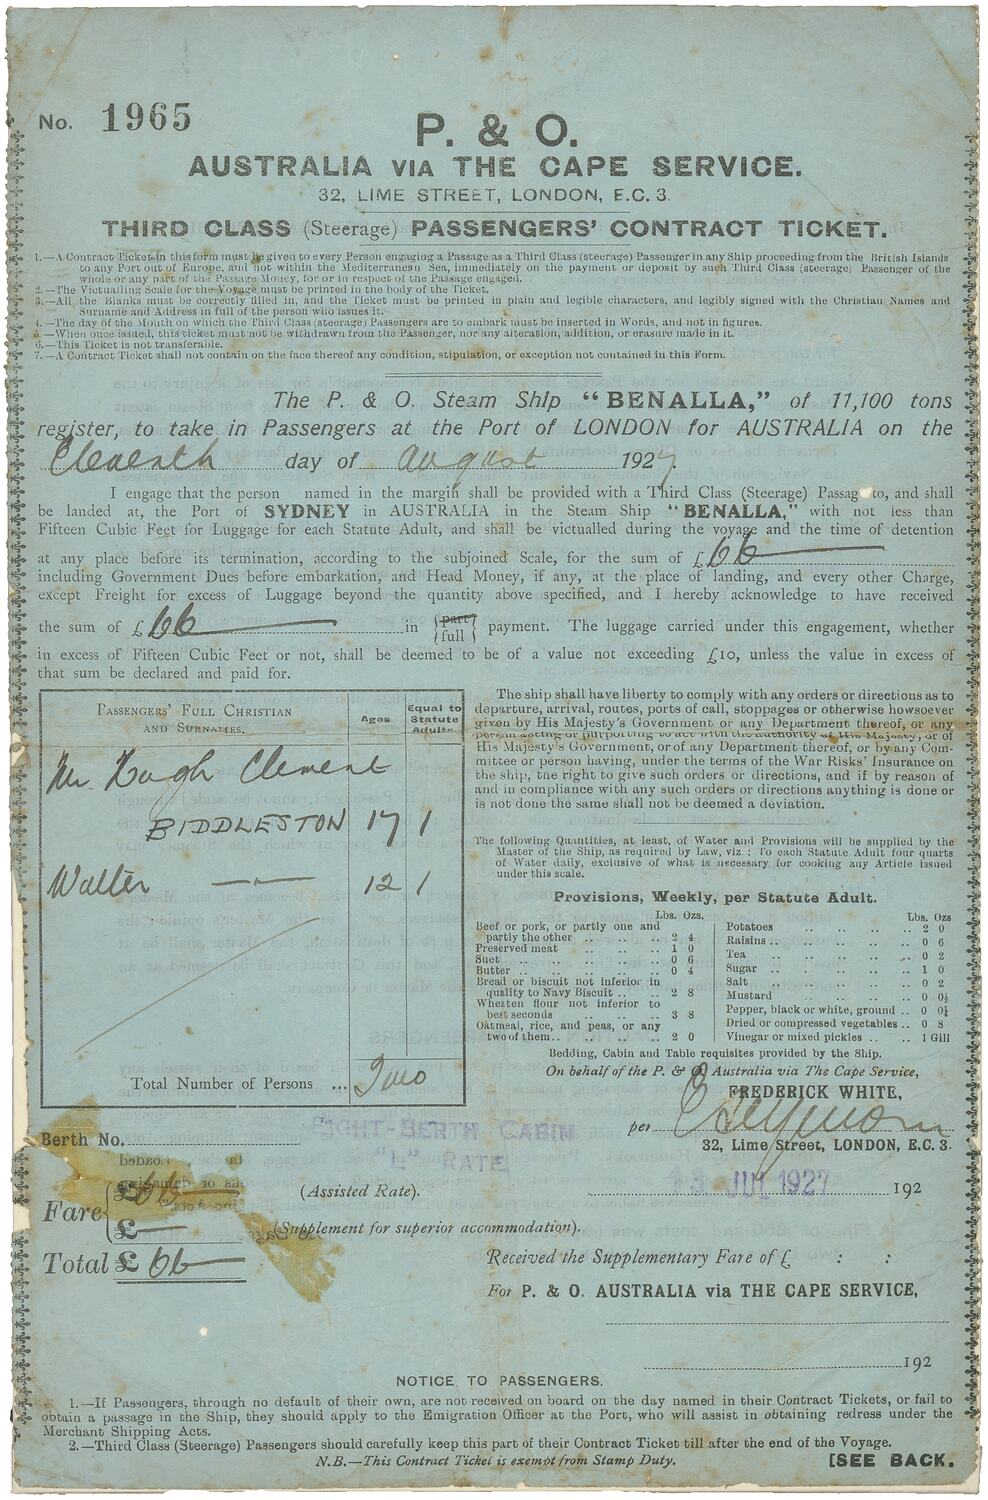 No. 1965
P. & O.
AUSTRALIA VIA THE CAPE SERVICE.
32, LIME STREET, LONDON, E.C. 3.
THIRD CLASS (Steerage) PASSENGERS' CONTRACT TICKET.
1.—A Contract Ticket in this form must be given to every Person engaging a Passage as a Third Class (steerage) Passenger in any Ship proceeding from the British Islands
to any Port out of Europe, and not within the Mediterranean Sea, immediately on the payment or deposit by such Third Class (steerage) Passenger of the
whole or any part of the Passage Money, for or in respect of the Passage engaged.
2.—The Victualling Scale for the Voyage must be printed in the body of the Ticket.
3.—All the Blanks must be correctly filled in, and the Ticket must be printed in plain and legible characters, and legibly signed with the Christian Names and
Surname and Address in full of the person who issues it.
4.—The day of the Month on which the Third Class (steerage) Passengers are to embark must be inserted in Words, and not in figures.
5.—When once issued, this ticket must not be withdrawn from the Passenger, nor any alteration, addition, or erasure made in it.
6.—This Ticket is not transferable.
7.—A Contract Ticket shall not contain on the face thereof any condition, stipulation, or exception not contained in this Form.
The P. & O. Steam Ship "BENALLA," of 11,100 tons
register, to take in Passengers at the Port of LONDON for AUSTRALIA on the
Eleventh day of August 1927.
I engage that the person named in the margin shall be provided with a Third Class (Steerage) Passag to, and shall
be landed at, the Port of SYDNEY in AUSTRALIA in the Steam Ship "BENALLA," with not less than
Fifteen Cubic Feet for Luggage for each Statute Adult, and shall be victualled during the voyage and the time of detention
at any place before its termination, according to the subjoined Scale, for the sum of £66
including Government Dues before embarkation, and Head Money, if any, at the place of landing, and every other Charge,
except Freight for excess of Luggage beyond the quantity above specified, and I hereby acknowledge to have received
the sum of £66 in {part full} payment. The luggage carried under this engagement, whether
in excess of Fifteen Cubic Feet or not, shall be deemed to be of a value not exceeding £10, unless the value in excess of
that sum be declared and paid for.
PASSENGERS' FULL CHRISTIAN AND SURNAMES. Ages. Equal to Statute Adults
Mr. Hugh Clement
BIDDLESTON 17 1
Walter —"— 12 1
Total Number of Persons ... Two
The ship shall have liberty to comply with any orders or directions as to
departure, arrival, routes, ports of call, stoppages or otherwise howsoever
given by His Majesty's Government or any Department thereof, or any
person acting or purporting to act with the authority of His Majesty, or of
His Majesty's Government, or of any Department thereof, or by any Com-
mittee or person having, under the terms of the War Risks' Insurance on
the ship, the right to give such orders or directions, and if by reason of
and in compliance with any such orders or directions anything is done or
is not done the same shall not be deemed a deviation.
The following Quantities, at least, of Water and Provisions will be supplied by the
Master of the Ship, as required by Law, viz.: To each Statute Adult four quarts
of Water daily, exclusive of what is necessary for cooking any Article issued
under this scale.
Provisions, Weekly, per Statute Adult.
Lbs. Ozs.
Beef or pork, or partly one and
partly the other .. .. .. 2 4
Preserved meat .. .. .. 1 0
Suet .. .. .. .. 0 6
Butter .. .. .. .. 0 4
Bread or biscuit not inferior in
quality to Navy Biscuit .. .. 2 8
Wheaten flour not inferior to
best seconds .. .. .. 3 8
Oatmeal, rice, and peas, or any
two of them .. .. .. 2 0
Lbs. Ozs
Potatoes .. .. .. .. 2 0
Raisins .. .. .. .. 0 6
Tea .. .. .. .. 0 2
Sugar .. .. .. .. 1 0
Salt .. .. .. .. 0 2
Mustard .. .. .. .. 0 0½
Pepper, black or white, ground .. 0 0¼
Dried or compressed vegetables .. 0 8
Vinegar or mixed pickles .. .. 1 Gill
Bedding, Cabin and Table requisites provided by the Ship.
On behalf of the P. & O. Australia via The Cape Service,
FREDERICK WHITE,
per
32, Lime Street, LONDON, E.C. 3.
Berth No.
EIGHT-BERTH CABIN
"L" RATE
13 JUL 1927 192
Fare { £66 (Assisted Rate).
£— (Supplement for superior accommodation).
Total £66
Received the Supplementary Fare of £ : :
For P. & O. AUSTRALIA via THE CAPE SERVICE,
192
NOTICE TO PASSENGERS.
1.—If Passengers, through no default of their own, are not received on board on the day named in their Contract Tickets, or fail to
obtain a passage in the Ship, they should apply to the Emigration Officer at the Port, who will assist in obtaining redress under the
Merchant Shipping Acts.
2.—Third Class (Steerage) Passengers should carefully keep this part of their Contract Ticket till after the end of the Voyage.
N.B.—This Contract Ticket is exempt from Stamp Duty.
[SEE BACK.